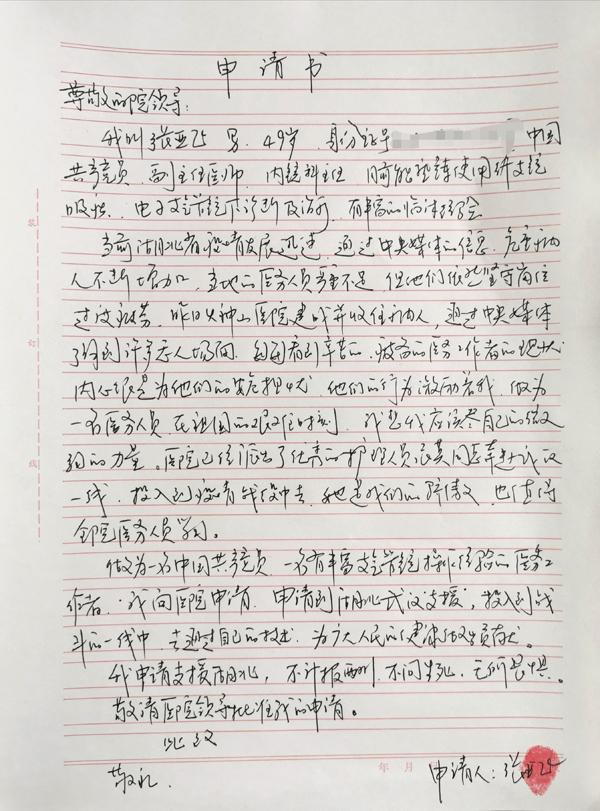 申请书
尊敬的院领导：
我叫张亚 男、49岁，身份证号 中国
共产党员、副主任医师、内镜科主任 目前能熟练使用纤支镜
吸痰、电子支气管镜下诊断及治疗，有丰富的临床经验
当前湖北省疫情发展迅速，通过中央媒体的信息，危重病
人不断增加，当地的医务人员严重不足，但他们依然坚守岗位
过度疲劳，昨日火神山医院建成并收住病人，通过中央媒体
了解到许多感人场面，每每看到辛苦的、疲惫的医务工作者的现状
内心很是为他们的安危担忧，他们的行为激励着我，做为
一名医务人员 在祖国的艰难时刻，我想我应该尽自己的微
薄的力量。医院已经派出了优秀的护理人员 同志奔赴武汉
一线，投入到疫情战役中去，她是我们的骄傲，也值得
全院医务人员学习。
做为一名中国共产党员，一名有丰富支气管镜操作经验的医务工
作者，我向医院申请，申请到湖北武汉支援，投入到战
斗的一线中，去通过自己的技术，为广大人民的健康做出贡献。
我申请支援湖北，不计报酬、不问生死、无所畏惧。
敬请医院领导批准我的申请。
此致
敬礼
年 月
申请人：张亚
装
订
线